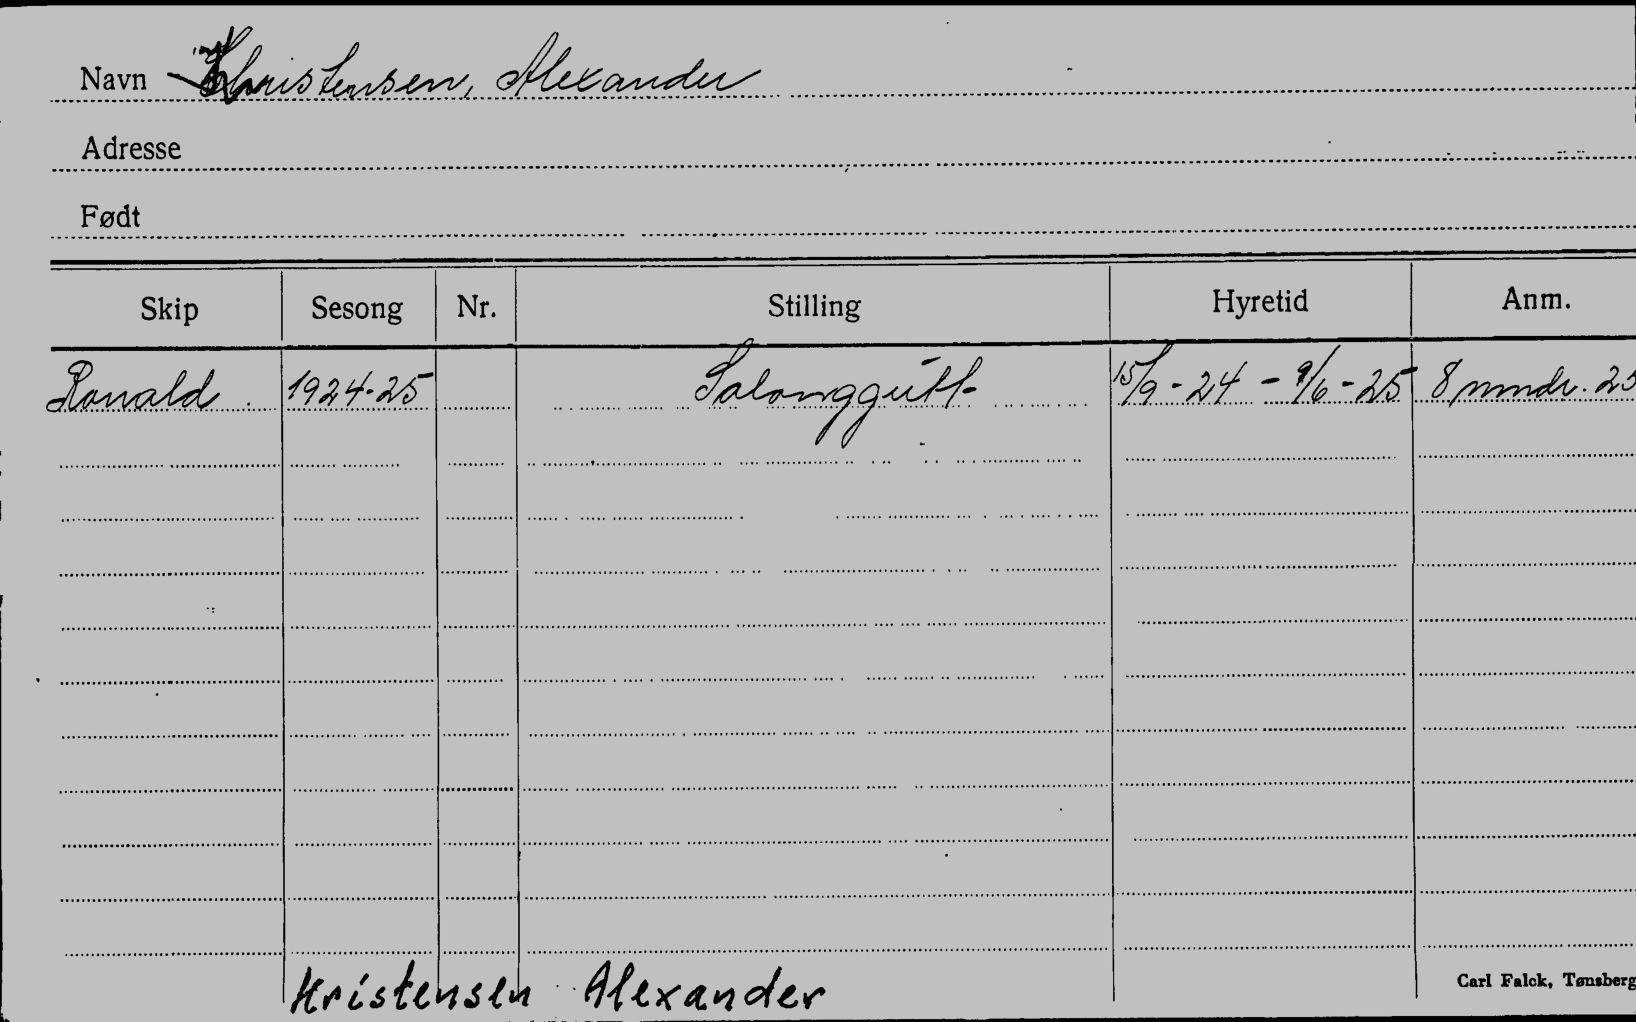 Navn Kristensen, Alexander
Adresse
Født
Skip Sesong Nr. Stilling Hyretid Anm.
Ronald 1924-25 Salonggutt 15/9-24 - 9/6-25 8 mndr. 25
Kristensen Alexander
Carl Falck, Tønsberg